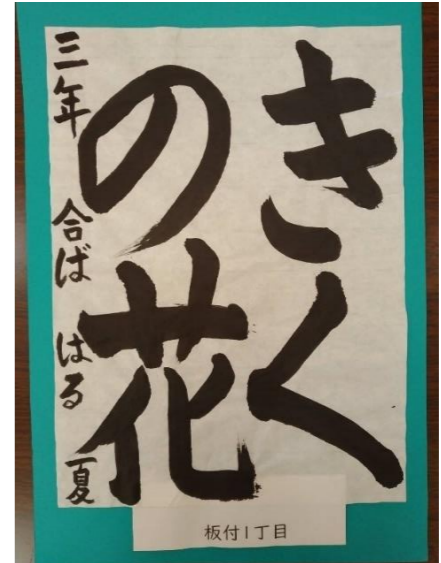 きく
の花
三年 合ば はる夏
板付1丁目